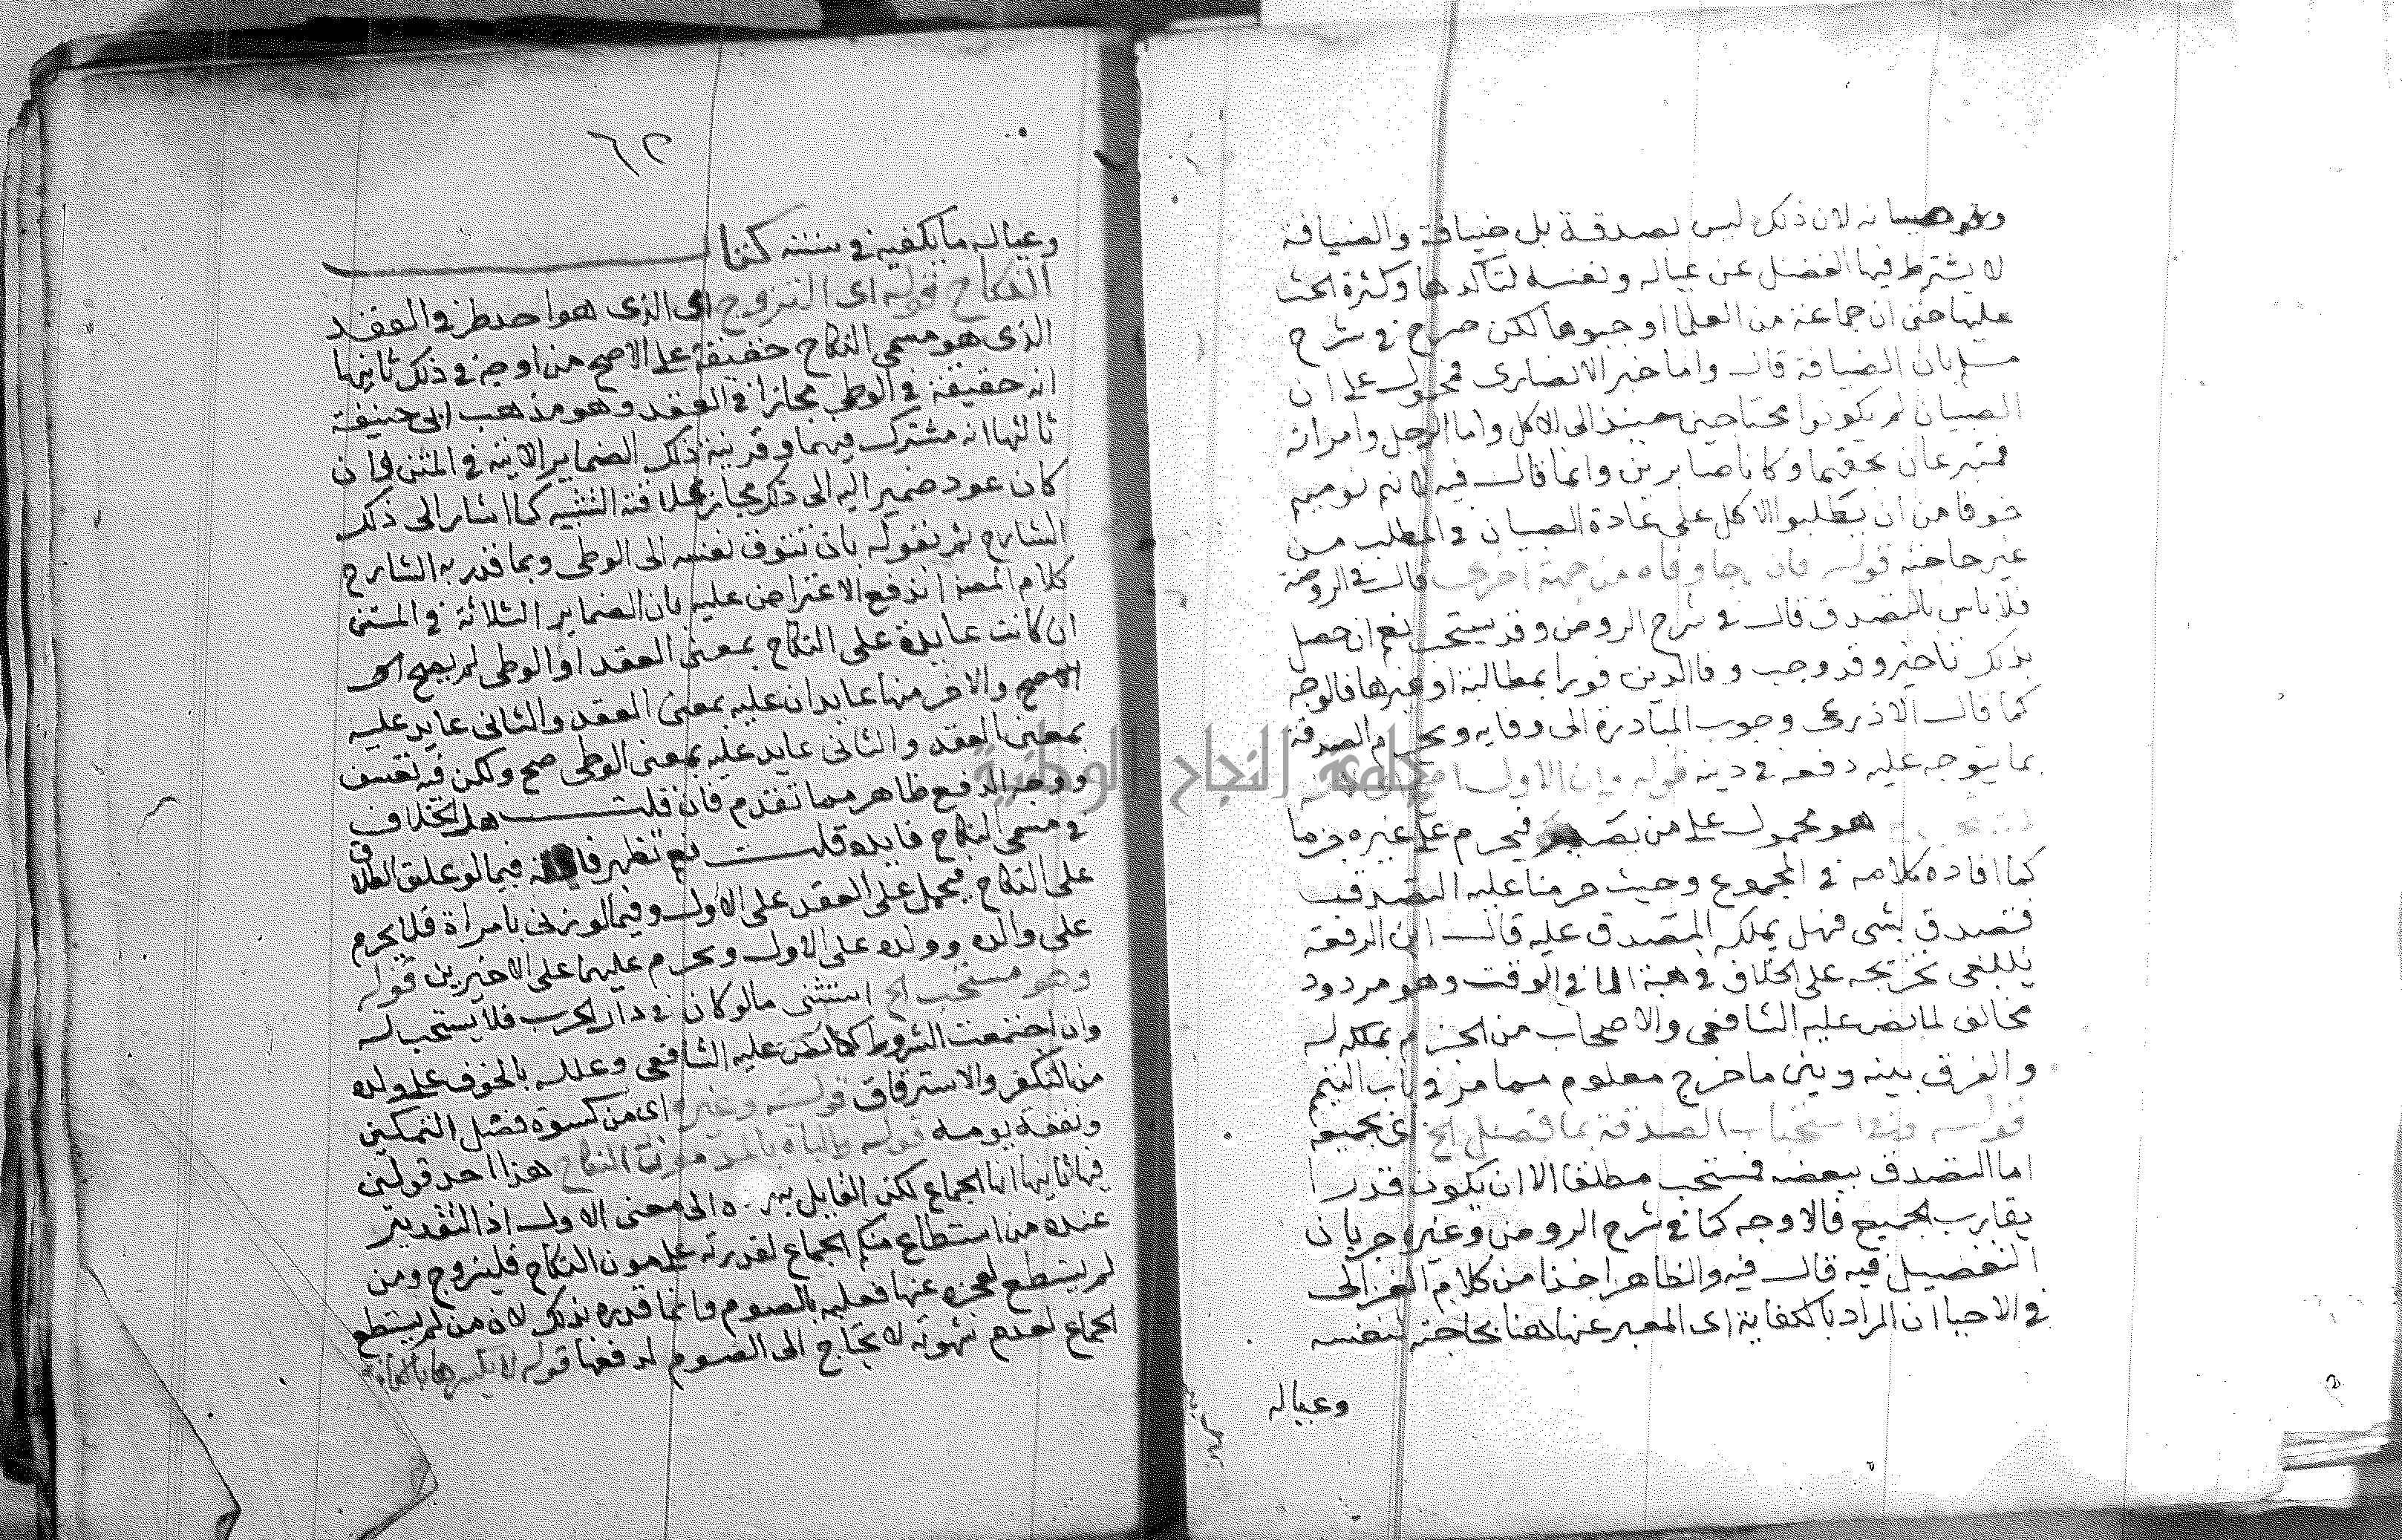 وقوت صبيانه لان ذلك ليس بصدقة بل ضيافة والضيافة
لا يشترط فيها الفضل عن عياله ونفسه لتاكدها وكثرة الحث
عليها حتى ان جماعة من العلما اوجبوها لكن صرح في شرح
مسلم بان الضيافة قال واما خبر الانصارى فمحمول على ان
الصبيان لم يكونوا محتاجين حينئذ الى الاكل واما الرجل وامراته
فمتبرعان بحقهما وكانا صابرين وانما قال فيه لامهم نوميهم
خوفا من ان يطلبوا الاكل على عادة الصبيان في المطلب من
غير حاجة قوله فان رجا وفاه من جهة اخرى قال في الروضة
فلا باس بالتصدق قال في شرح الروض وقد يستحب نعم ان حصل
بذلك تاخير وقد وجب وفا الدين فورا بمطالبة او غيرها فالوجه
كما قال الاذرعى وجوب المبادرة الى وفايه وتحريم الصدقة
بما يتوجه عليه دفعه في دينه قوله وان الاول
هو محمول على من يصبر فيحرم على غيره جزما
كما افاده كلامه في المجموع وحيث حرمنا عليه التصدق
فتصدق بشى فهل يملكه المتصدق عليه قال ابن الرفعة
ينبغى تخريجه على الخلاف في هبة الما في الوقت وهو مردود
مخالف لما نص عليه الشافعى والاصحاب من الجزم بملكه له
والفرق بينه وبين ما خرج معلوم مما مر في باب التيمم
قوله وفي استحباب الصدقة بما فضل الخ اى بجميعه
اما التصدق ببعضه فمستحب مطلقا الا ان يكون قدرا
يقارب الجميع فالاوجه كما في شرح الروض وغيره جريان
التفصيل فيه قال فيه والظاهر اخذا من كلام الغزالى
في الاحيا ان المراد بالكفاية اى المعبر عنها هنا بحاجته لنفسه
وعياله
٦٢
وعياله ما يكفيه في سنته كتا
النكاح قوله اى التزوج اى الذى هو احد طرفي العقد
الذى هو مسمى النكاح حقيقة على الاصح من اوجه في ذلك ثانيها
انه حقيقة في الوطى مجازا في العقد وهو مذهب ابى حنيفة
ثالثها انه مشترك فيهما وقرينة ذلك الضماير الاتية في المتن وان
كان عود ضمير اليه الى ذلك مجاز علاقته التشبيه كما اشار الى ذلك
الشارح ثم بقوله بان تتوق نفسه الى الوطى وبما قدر به الشارح
كلام المصنف اندفع الاعتراض عليه بان الضماير الثلاثة في المتن
ان كانت عايدة على النكاح بمعنى العقد او الوطى لم يصح
والاخر منها عايدان عليه بمعنى العقد والثانى عايد عليه
بمعنى العقد والثانى عايد عليه بمعنى الوطى صح ولكن فيه تعسف
ووجه الدفع ظاهر مما تقدم فان قلت هل لخلاف
في مسمى النكاح فايدة قلت نعم تظهر فايدته فيما لو علق الطلاق
على النكاح فيحمل على العقد على الاول وفيما لو زنى بامراة فلا يحرم
على والده وولده على الاول ويحرم عليهما على الاخيرين قوله
وهو مستحب الخ استثنى ما لو كان في دار الحرب فلا يستحب له
وان اجتمعت الشروط كما نص عليه الشافعى وعلله بالخوف على ولده
من التكفر والاسترقاق قوله وغيره اى من كسوة فصل التمكين
ونفقة يومه قوله والباه بالمد مون النكاح هذا احد قولين
فيها ثانيها انها الجماع لكن القايل به رده الى معنى الاول اذ التقدير
عنده من استطاع منكم الجماع لقدرته على مون النكاح فليتزوج ومن
لم يستطع لعجزه عنها فعليه بالصوم وانما قدره بذلك لان من لم يستطع
الجماع لعدم شهوته لا يحتاج الى الصوم لدفعها قوله لا يكسرها بالكافور